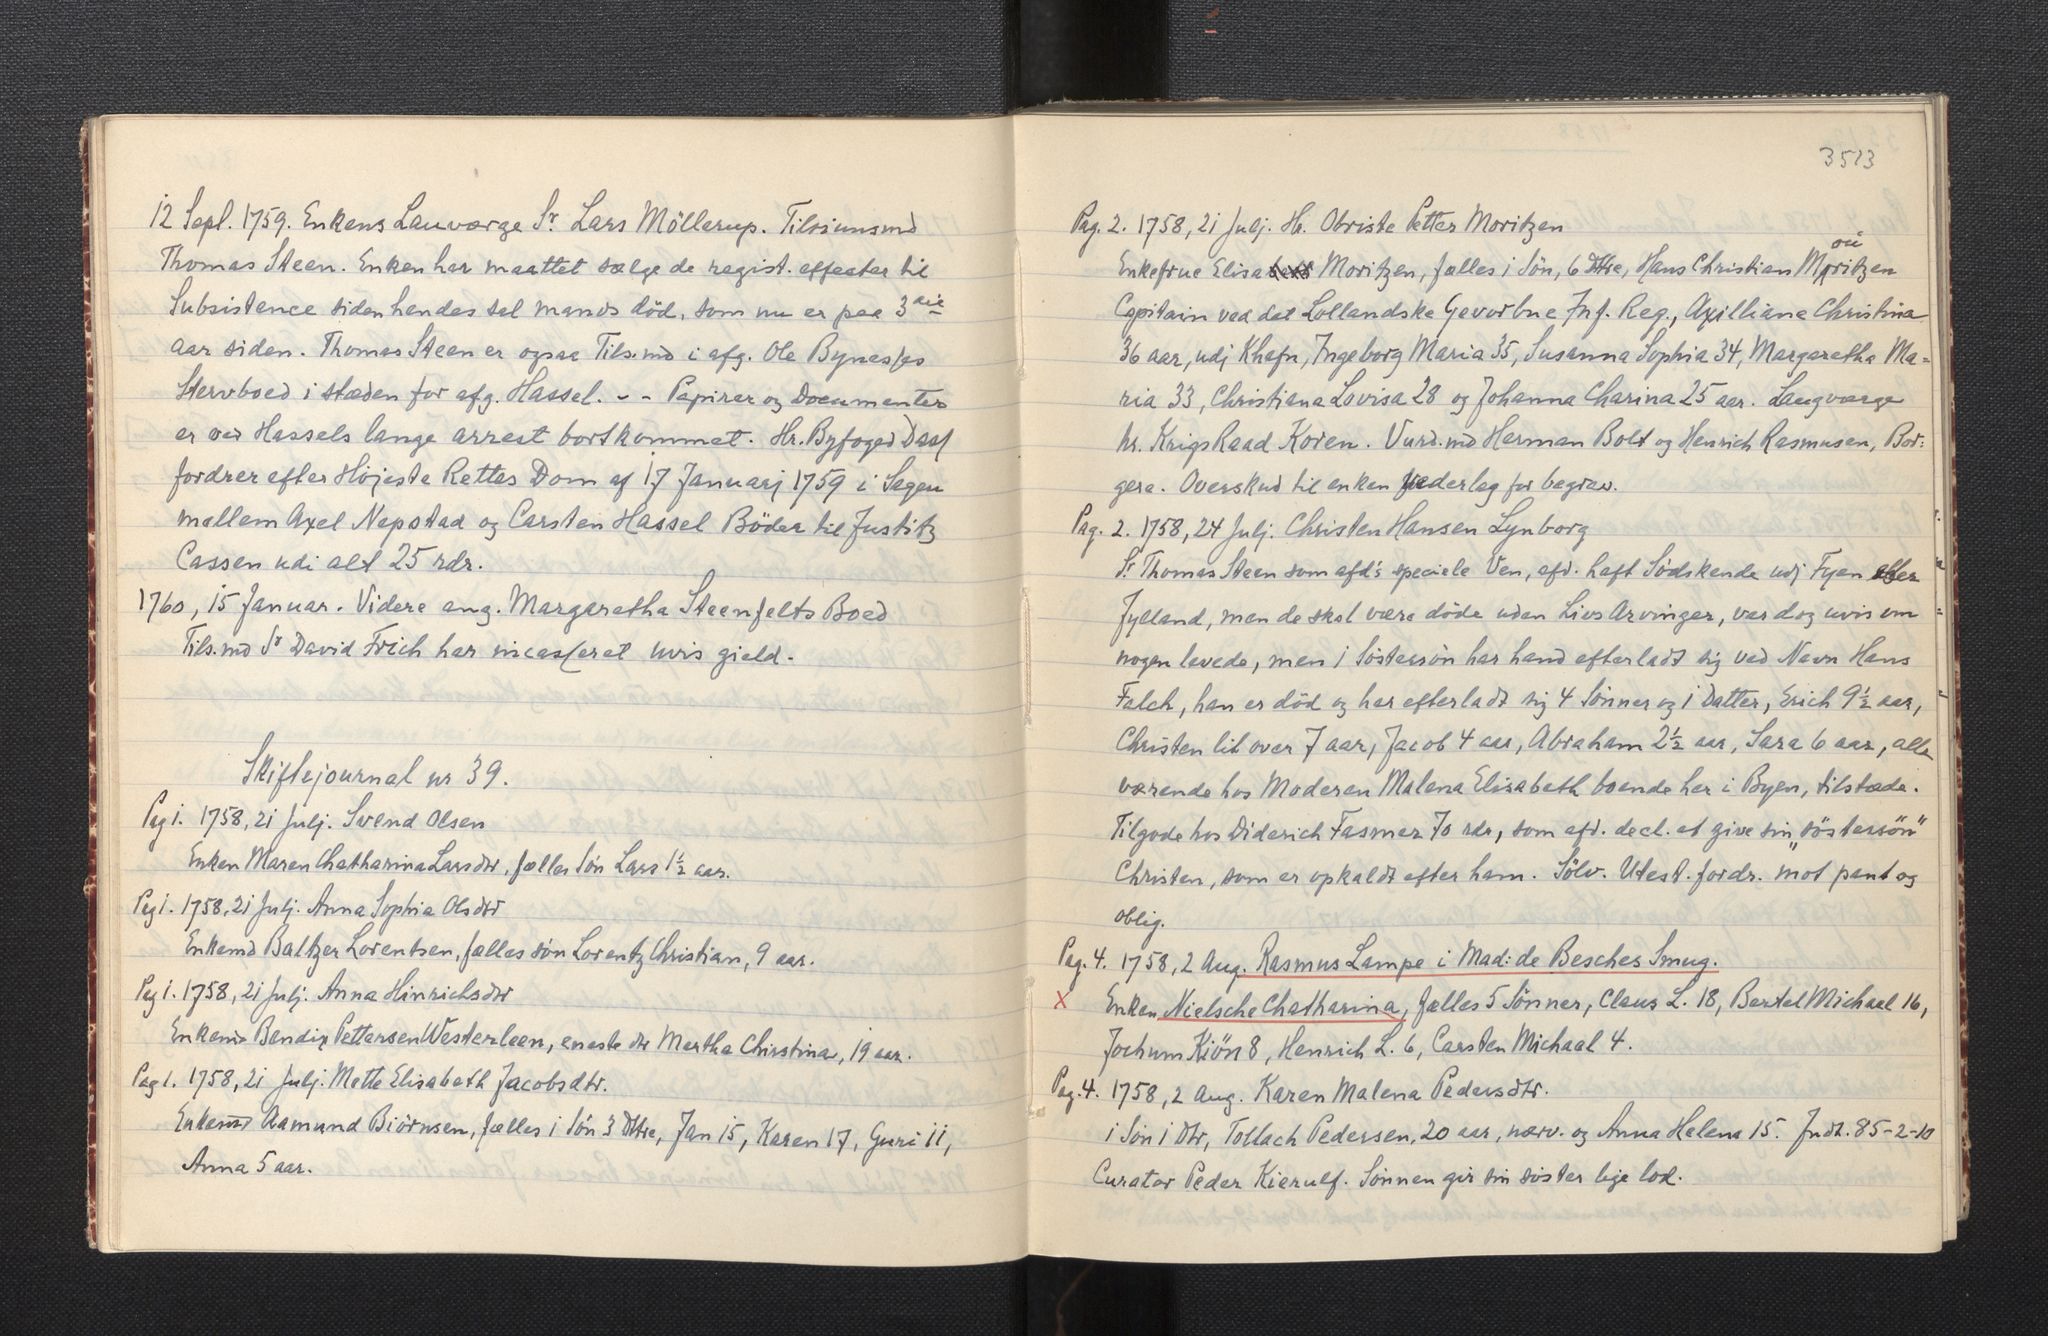 12 Sept. 1759. Enkens Lauværge Sr. Lars Möllerup. Tilsiunsmd
Thomas Steen. Enken har maattet sælge de regist. effecter til
Subsistence siden hendes sal mands död, som nu er paa 3die
aar siden. Thomas Steen er ogsaa Tils.md i afg. Ole Bynes
Stervboed i stæden for afg. Hassel. - - Papirer og Documenter
er ved Hassels lange arrest bortkommet. Hr. Byfoged Dass
fordrer efter Höjeste Rettes Dom af 17 Januarj 1759 i Sagen
mellem Axel Nepstad og Carsten Hassel Böder til Justitz
Cassen udi alt 25 rdr.
1760, 15 Januar. Videre ang. Margaretha Steenfelts Boed
Tils.md Sr David Frich har incasseret uvis gield.
Skiftejournal nr 39.
Pag 1. 1758, 21 Julj. Svend Olsen
Enken Maren Chatharina Larsdtr, fælles Sön Lars 1½ aar.
Pag 1. 1758, 21 Julj. Anna Sophia Olsdtr
Enkemd Baltzer Lorentsen, fælles sön Lorentz Christian, 9 aar.
Pag 1. 1758, 21 Julj. Anna Hinrichsdtr
Enkemd Bendix Pettersen Westerleen, eneste dtr Martha Christina, 19 aar.
Pag 1. 1758, 21 Julj. Mette Elisabeth Jacobsdtr.
Enkemd Aamund Biörnsen, fælles 1 Sön 3 Dttre, Jan 15, Karen 17, Guri 11,
Anna 5 aar.
3513
Pag. 2. 1758, 21 Julj. Hr. Obriste Petter Moritzen
Enkefrue Elisa Moritzen, fælles 1 Sön, 6 Dttre, Hans Christian Mouritzen
Capitain ved det Lollandske Gevorbne Inf. Reg., Axilliane Christina
36 aar, udj Khafn, Ingeborg Maria 35, Susanna Sophia 34, Margaretha Ma=
ria 33, Christiana Lovisa 28 og Johanna Charina 25 aar. Laugværge
hr. KrigsRaad Koren. Vurd.md Herman Bolt og Henrich Rasmusen, Bor:
gere. Overskud til enken nederlag for begrav.
Pag. 2. 1758, 24 Julj. Christen Hansen Lynborg
Sr Thomas Steen som afd's speciele Ven, afd. haft Södskende udj Fyen eller
Jylland, men de skal være döde uden Livs Arvinger, var dog uvis om
nogen levede, men 1 Söstersön har hand efterladt sig ved Navn Hans
Falch, han er död og har efterladt sig 4 Sönner og 1 Datter, Erich 9½ aar,
Christen lit over 7 aar, Jacob 4 aar, Abraham 2½ aar, Sara 6 aar, alle
værende hos Moderen Malena Elisabeth boende her i Byen, tilstæde.
Tilgode hos Diderich Fasmer 70 rdr, som afd. decl. at give sin "söstersön"
Christen, som er opkaldt efter ham. Sölv. Utest. fordr. mot pant og
oblig.
Pag. 4. 1758, 2 Aug. Rasmus Lampe i Mad: de Besches Smug.
x Enken Nielsche Chatharina, fælles 5 Sönner, Claus L. 18, Bertel Michael 16,
Jochum Kiön 8, Henrich L. 6, Carsten Michael 4.
Pag. 4. 1758, 2 Aug. Karen Malena Pedersdtr.
1 Sön 1 Dtr, Tollach Pedersen, 20 aar, nærv. og Anna Helena 15. Indt. 85-2-10
Curator Peder Kierulf. Sönnen gir sin söster lige lod.